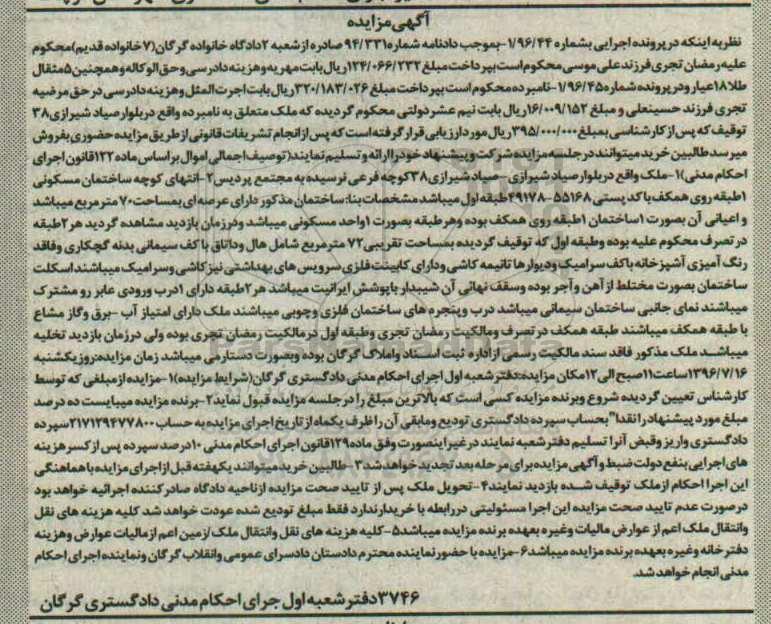 آگهی مزایده
نظر به اینکه در پرونده اجرایی بشماره 1/96/44- بموجب دادنامه شماره 94/331 صادره از شعبه 2 دادگاه خانواده گرگان(7 خانواده قدیم) محکوم
علیه رمضان تجری فرزند علی موسی محکوم است بپرداخت مبلغ 124/066/232 ریال بابت مهریه و هزینه دادرسی و حق الوکاله و همچنین 5 مثقال
طلا 18 عیار و در پرونده شماره 1/96/45- نامبرده محکوم است بپرداخت مبلغ 320/183/026 ریال بابت اجرت المثل و هزینه دادرسی در حق مرضیه
تجری فرزند حسینعلی و مبلغ 16/009/152 ریال بابت نیم عشر دولتی محکوم گردیده که ملک متعلق به نامبرده واقع در بلوار صیاد شیرازی 38
توقیف که پس از کارشناسی بمبلغ 395/000/000 ریال مورد ارزیابی قرار گرفته است که پس از انجام تشریفات قانونی از طریق مزایده حضوری بفروش
میرسد طالبین خرید میتوانند در جلسه مزایده شرکت و پیشنهاد خود را ارائه و تسلیم نمایند(توصیف اجمالی اموال بر اساس ماده 122 قانون اجرای
احکام مدنی)1- ملک واقع در بلوار صیاد شیرازی- صیاد شیرازی 38 کوچه فرعی نرسیده به مجتمع پردیس 2- انتهای کوچه ساختمان مسکونی
1 طبقه روی همکف با کد پستی 55168-49178 طبقه اول میباشد مشخصات بنا: ساختمان مذکور دارای عرصه ای بمساحت 70 متر مربع میباشد
و اعیانی آن بصورت 1 ساختمان 1 طبقه روی همکف بوده و هر طبقه بصورت 1 واحد مسکونی میباشد و در زمان بازدید مشاهده گردید هر 2 طبقه
در تصرف محکوم علیه بوده و طبقه اول که توقیف گردیده بمساحت تقریبی 72 متر مربع شامل هال و داتاق با کف سیمانی بدنه گچکاری و فاقد
رنگ آمیزی آشپزخانه با کف سرامیک و دیوارها تا نیمه کاشی و دارای کابینت فلزی سرویس های بهداشتی نیز کاشی و سرامیک میباشند اسکلت
ساختمان بصورت مختلط از آهن و آجر بوده و سقف نهائی آن شیبدار با پوشش ایرانیت میباشد هر 2 طبقه دارای 1 درب ورودی عابر رو مشترک
میباشند نمای جانبی ساختمان سیمانی میباشد درب و پنجره های ساختمان فلزی و چوبی میباشند ملک دارای امتیاز آب -برق و گاز مشاع
با طبقه همکف میباشند طبقه همکف در تصرف و مالکیت رمضان تجری و طبقه اول در مالکیت رمضان تجری بوده ولی در زمان بازدید تخلیه
میباشد ملک مذکور فاقد سند مالکیت رسمی از اداره ثبت اسناد و املاک گرگان بوده و بصورت دستارمی میباشد زمان مزایده: روز یکشنبه
1396/7/16 ساعت 11 صبح الی 12 مکان مزایده: دفتر شعبه اول اجرای احکام مدنی دادگستری گرگان(شرایط مزایده)1- مزایده از مبلغی که توسط
کارشناس تعیین گردیده شروع و برنده مزایده کسی است که بالاترین مبلغ را در جلسه مزایده قبول نماید 2- برنده مزایده میبایست ده درصد
مبلغ مورد پیشنهاد را نقدا" بحساب سپرده دادگستری تودیع و مابقی آن را ظرف یکماه از تاریخ اجرای مزایده به حساب 217129477800 سپرده
دادگستری واریز و قبض آنرا تسلیم دفتر شعبه نمایند در غیر اینصورت وفق ماده 129 قانون اجرای احکام مدنی 10 درصد سپرده پس از کسر هزینه
های اجرایی بنفع دولت ضبط و آگهی مزایده برای مرحله بعد تجدید خواهد شد 3- طالبین خرید میتوانند یکهفته قبل از اجرای مزایده با هماهنگی
این اجرا احکام از ملک توقیف شده بازدید نمایند 4- تحویل ملک پس از تایید صحت مزایده از ناحیه دادگاه صادر کننده اجرائیه خواهد بود
در صورت عدم تایید صحت مزایده این اجرا مسئولیتی در رابطه با خریدار ندارد فقط مبلغ تودیع شده عودت خواهد شد کلیه هزینه های نقل
و انتقال ملک اعم از عوارض مالیات و غیره بعهده برنده مزایده میباشد 5- کلیه هزینه های نقل و انتقال ملک/ زمین اعم از مالیات عوارض و هزینه
دفتر خانه و غیره بعهده برنده مزایده میباشد 6- مزایده با حضور نماینده محترم دادستان دادسرای عمومی و انقلاب گرگان و نماینده اجرای احکام
مدنی انجام خواهد شد.
3746 دفتر شعبه اول جرای احکام مدنی دادگستری گرگان